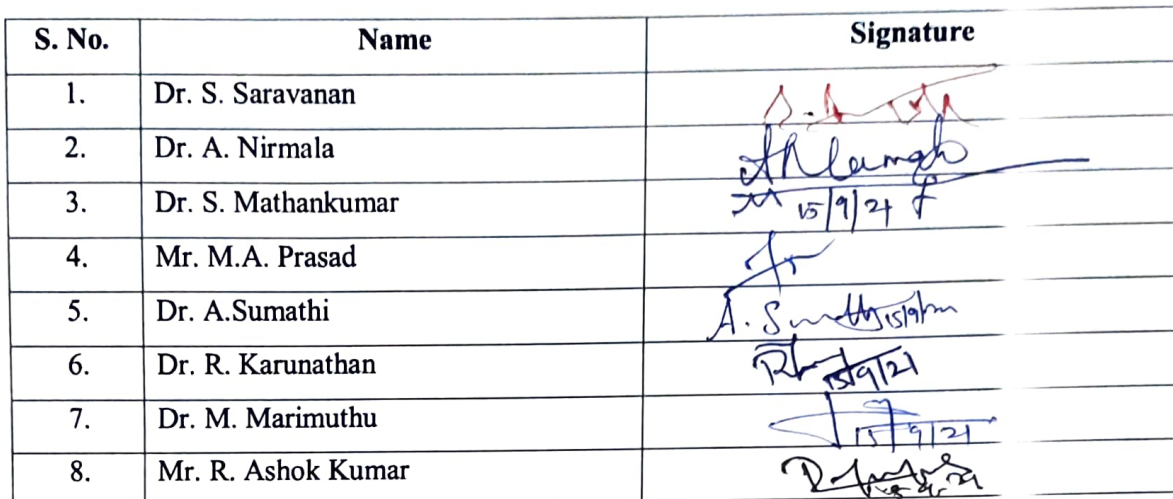 S. No. Name Signature
1. Dr. S. Saravanan
2. Dr. A. Nirmala
3. Dr. S. Mathankumar 15/9/21
4. Mr. M.A. Prasad
5. Dr. A.Sumathi A. Sumathi 15/9/21
6. Dr. R. Karunathan 15/9/21
7. Dr. M. Marimuthu 15/9/21
8. Mr. R. Ashok Kumar